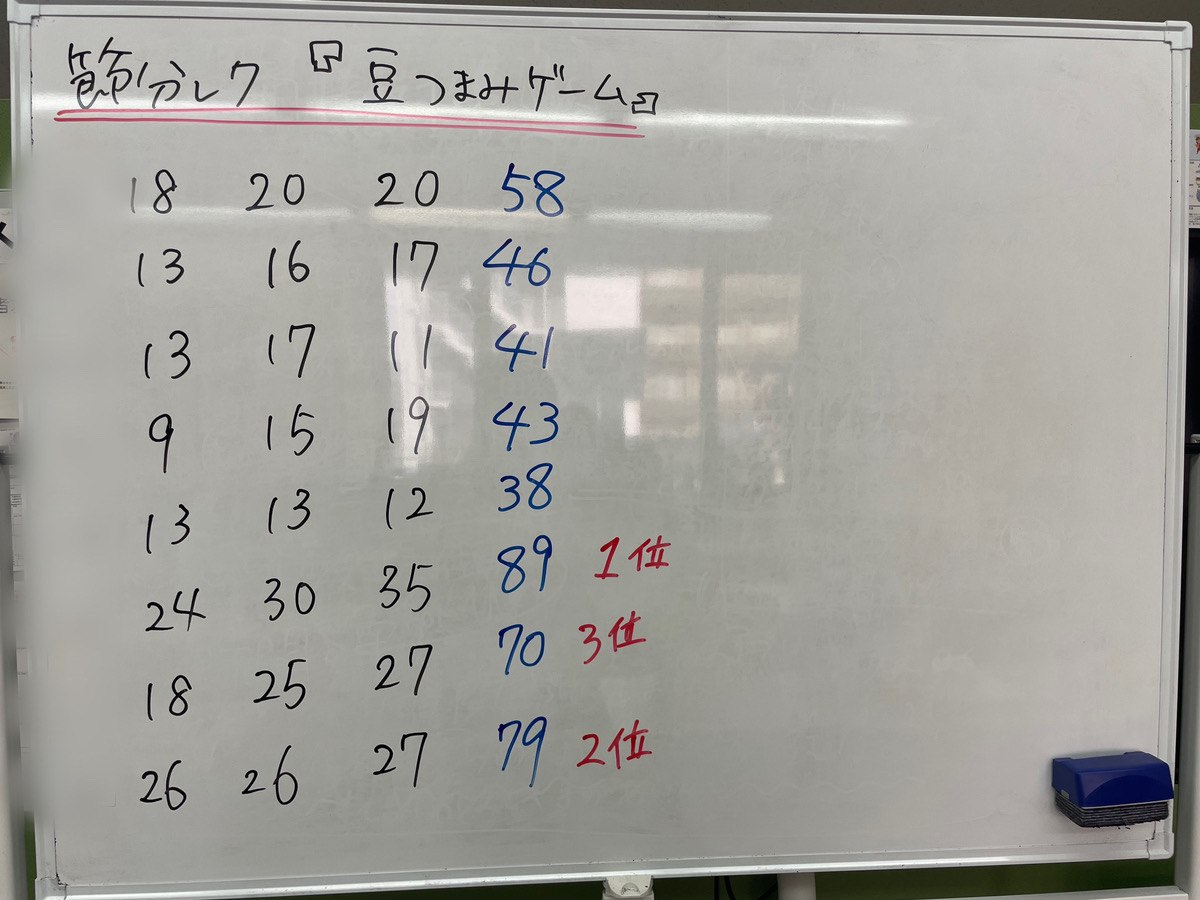 節分レク 『豆つまみゲーム』
18 20 20 58
13 16 17 46
13 17 11 41
9 15 19 43
13 13 12 38
24 30 35 89 1位
18 25 27 70 3位
26 26 27 79 2位